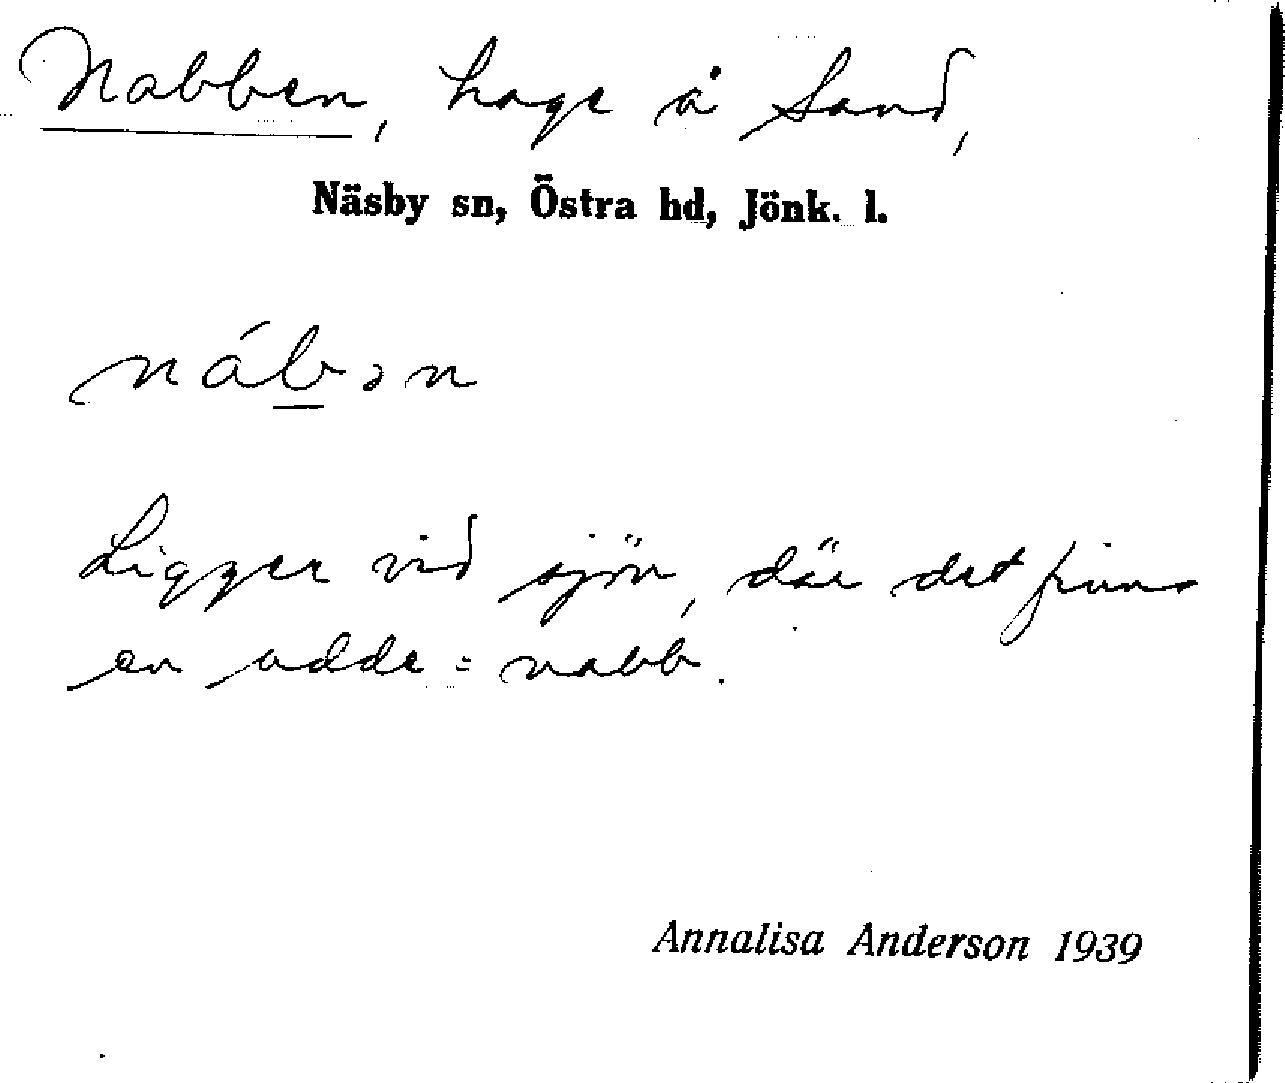 Nabben, hage å Sand,
Näsby sn, Östra hd, Jönk. l.
náb̲ən
Ligger vid sjön, där det finns
en udde = nabb.
Annalisa Anderson 1939